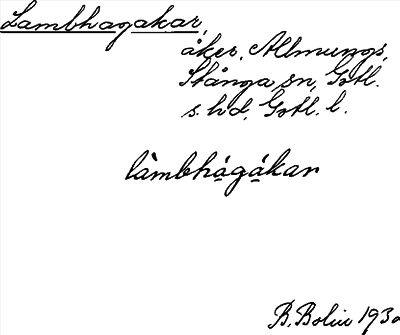 Lambhagakar,
åker, Allmungs,
Stånga sn, Gotl.
s. hd, Gotl. l.
làmbhágákar
B. Bolin 1930